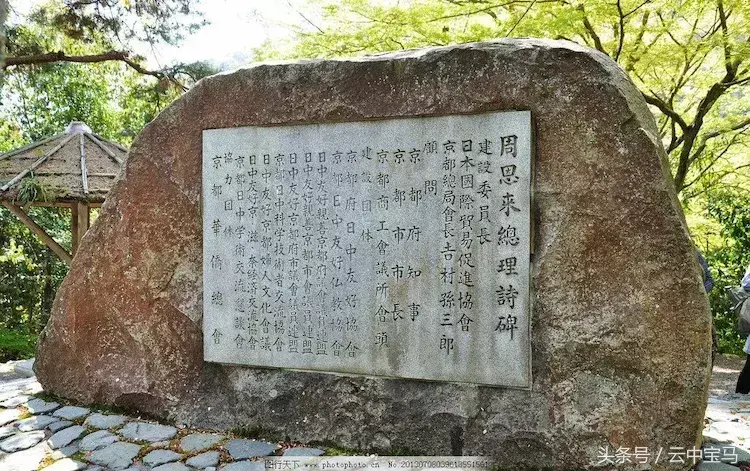 周恩来總理詩碑
建設委員長
日本國際貿易促進協會
京都總局會長吉村孫三郎
顧問
京都府知事
京都市市長
京都商工會議所會頭
建設団体
京都府日中友好協會
京都日中友好仏教協會
日中友好親善京都府議會議員連盟
日中友好親善京都市會議員連盟
日中友好京都府市議會議員連盟
京都日中科学技術者交流協會
日中友好京都婦人文化會議
日中友好京・滋日本経済交流協會
京都日中学術交流懇談會
協力団体
京都華僑總會
头条号 / 云中宝马